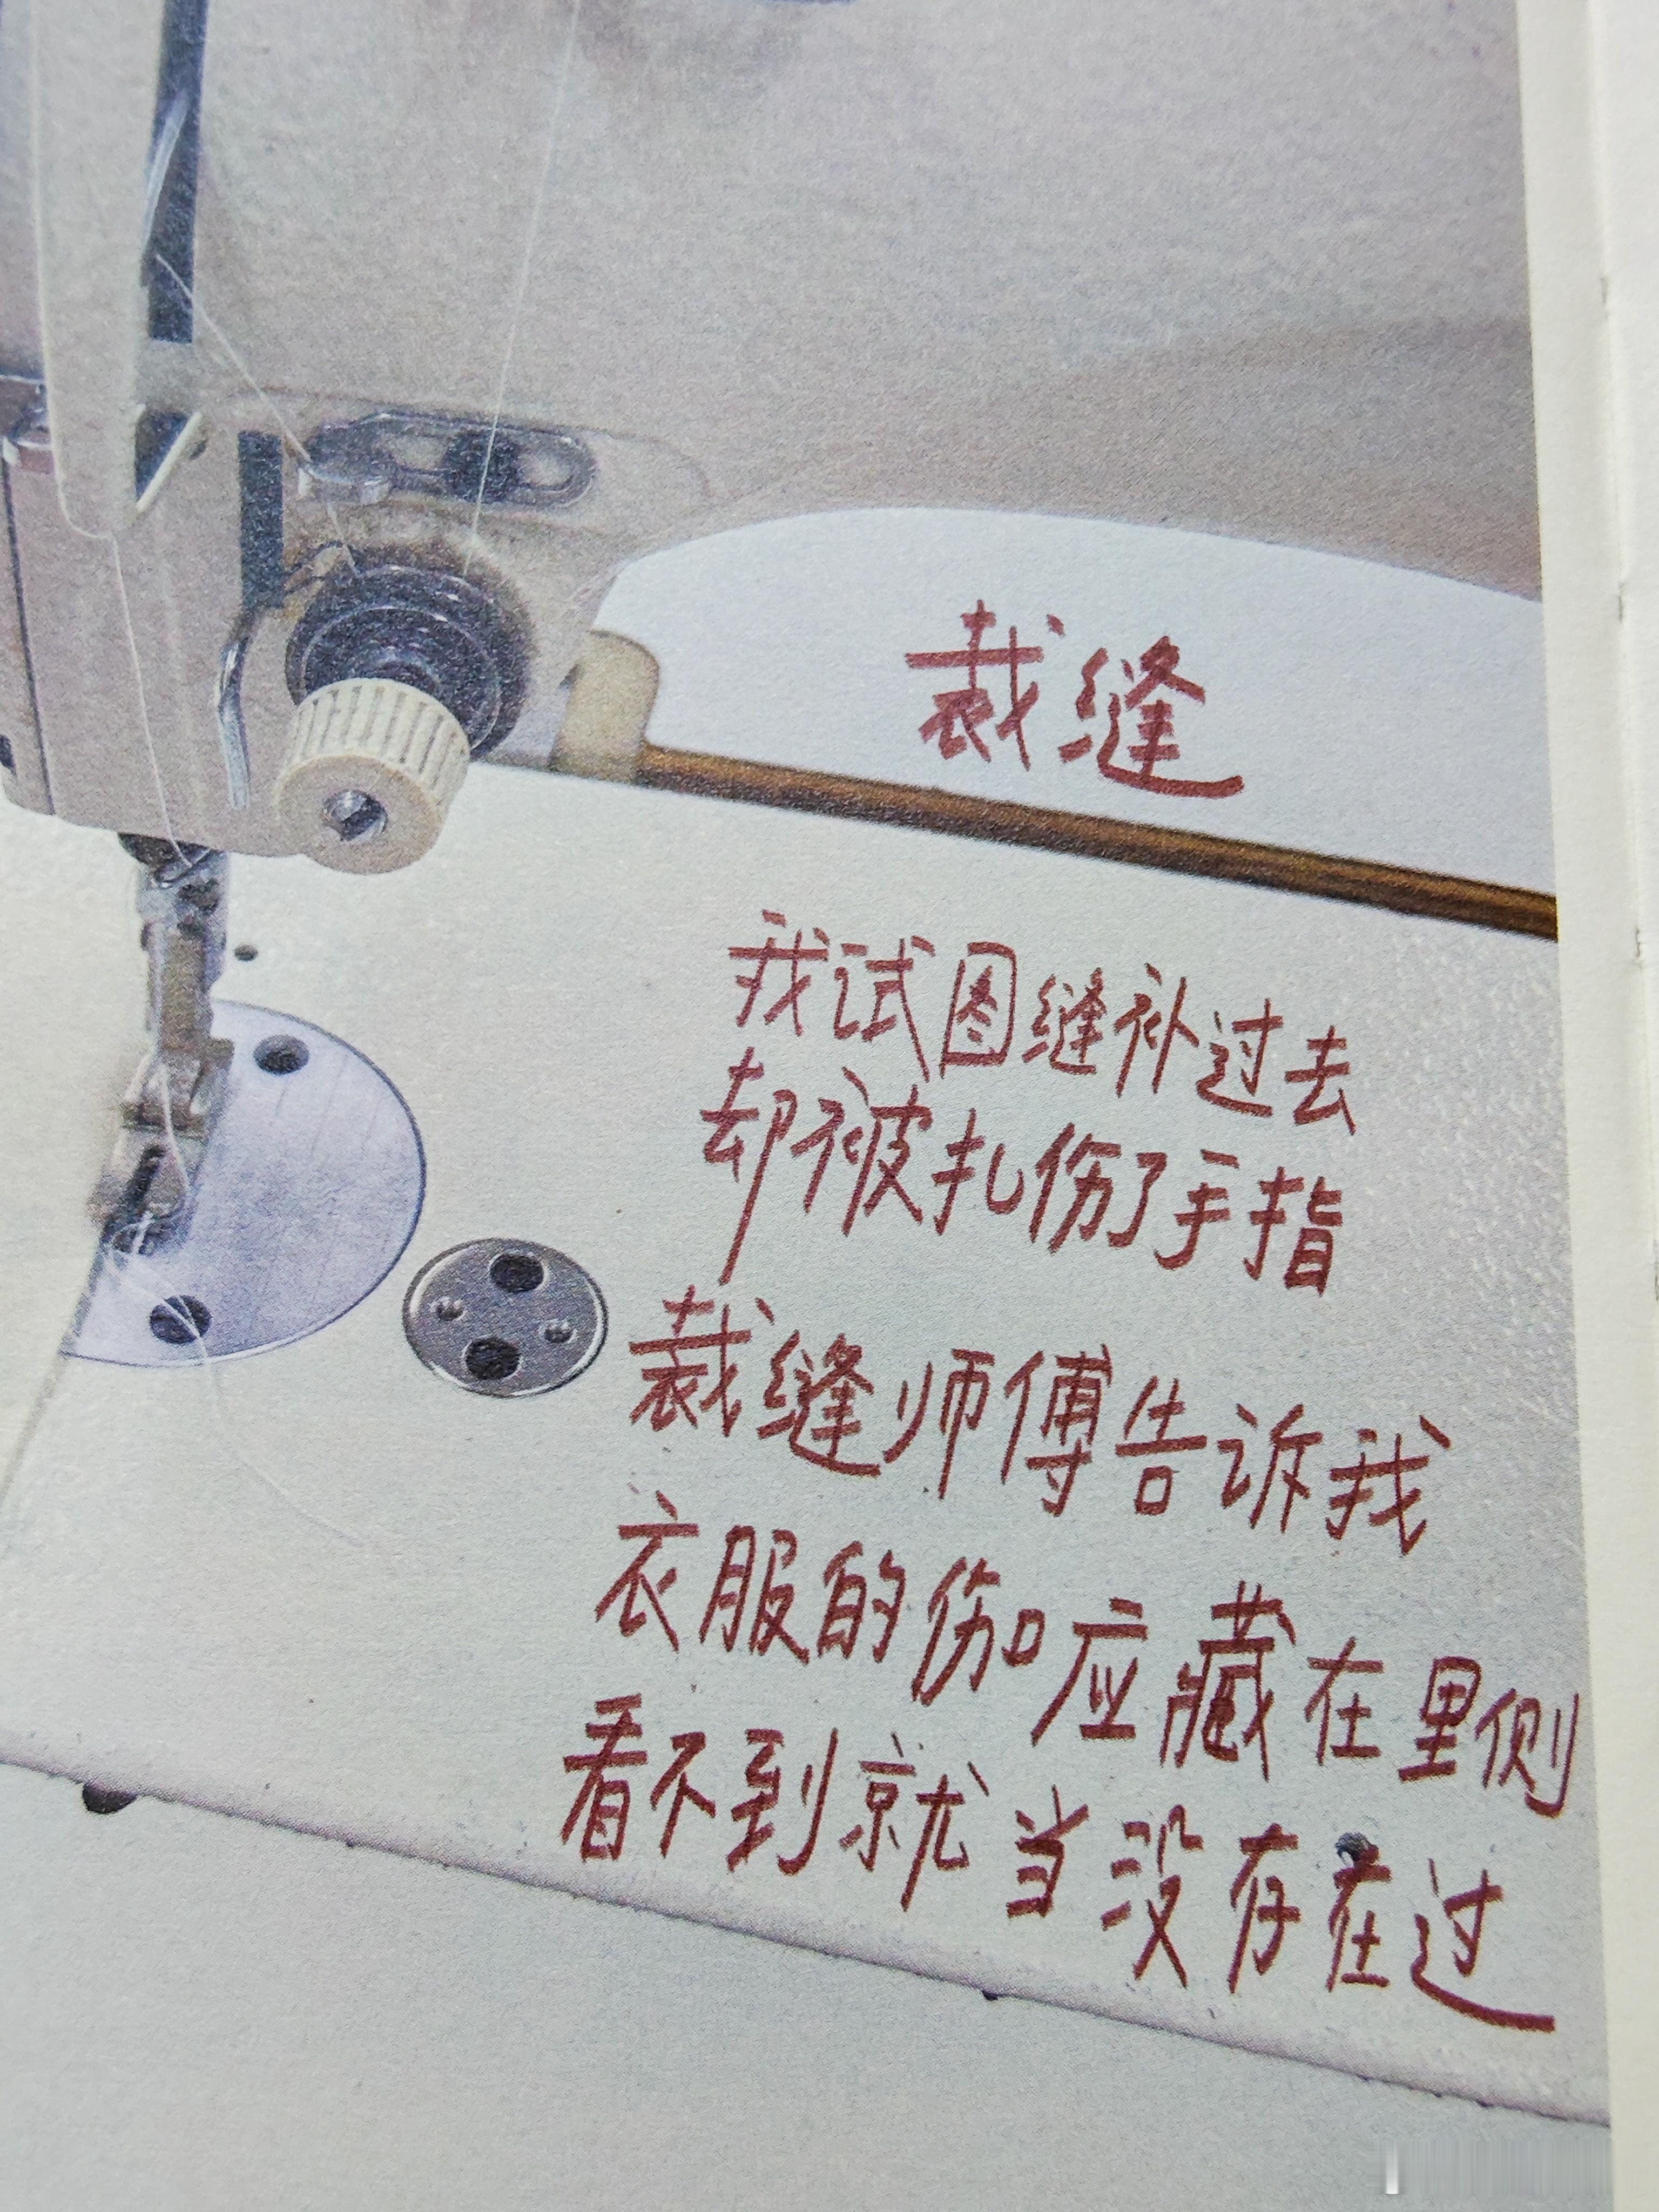 裁缝
我试图缝补过去
却被扎伤了手指
裁缝师傅告诉我
衣服的伤口应藏在里侧
看不到就当没存在过